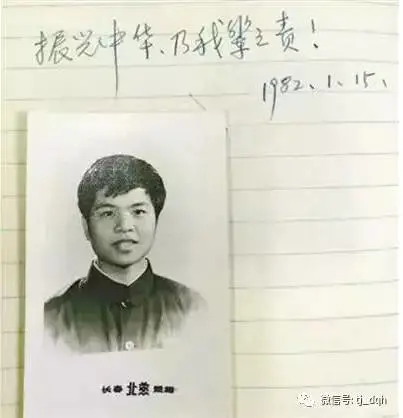 振兴中华、乃我辈之责!
1982.1.15.
长春 北燕 照相
微信号: tj_dqh